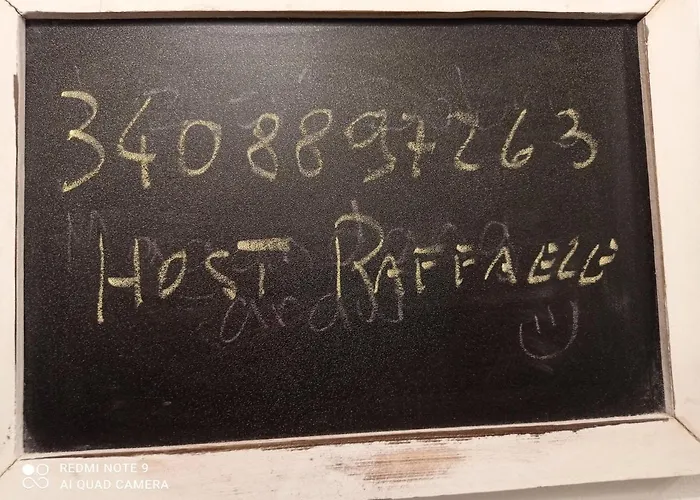 3408897263
HOST RAFFAELE
REDMI NOTE 9
AI QUAD CAMERA